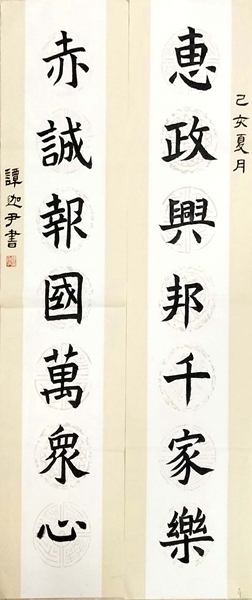 己亥夏月
惠政興邦千家樂
赤誠報國萬衆心
譚迦尹書